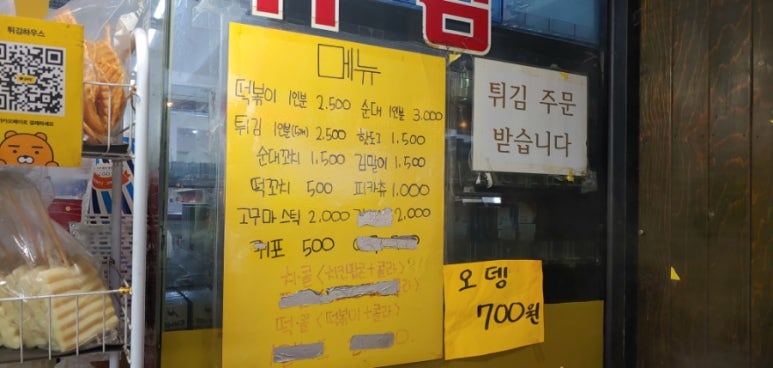 튀김하우스
메뉴
떡볶이 1인분 2.500 순대 1인분 3.000
튀김 1인분(5개) 2.500 핫도그 1.500
순대꼬치 1,500 김말이 1.500
떡꼬치 500 피카츄 1.000
고구마스틱 2.000 2.000
쥐포 500
치·콜 <치킨팝콘+콜라>
떡·콜 <떡볶이+콜라>
튀김 주문
받습니다
오뎅
700원